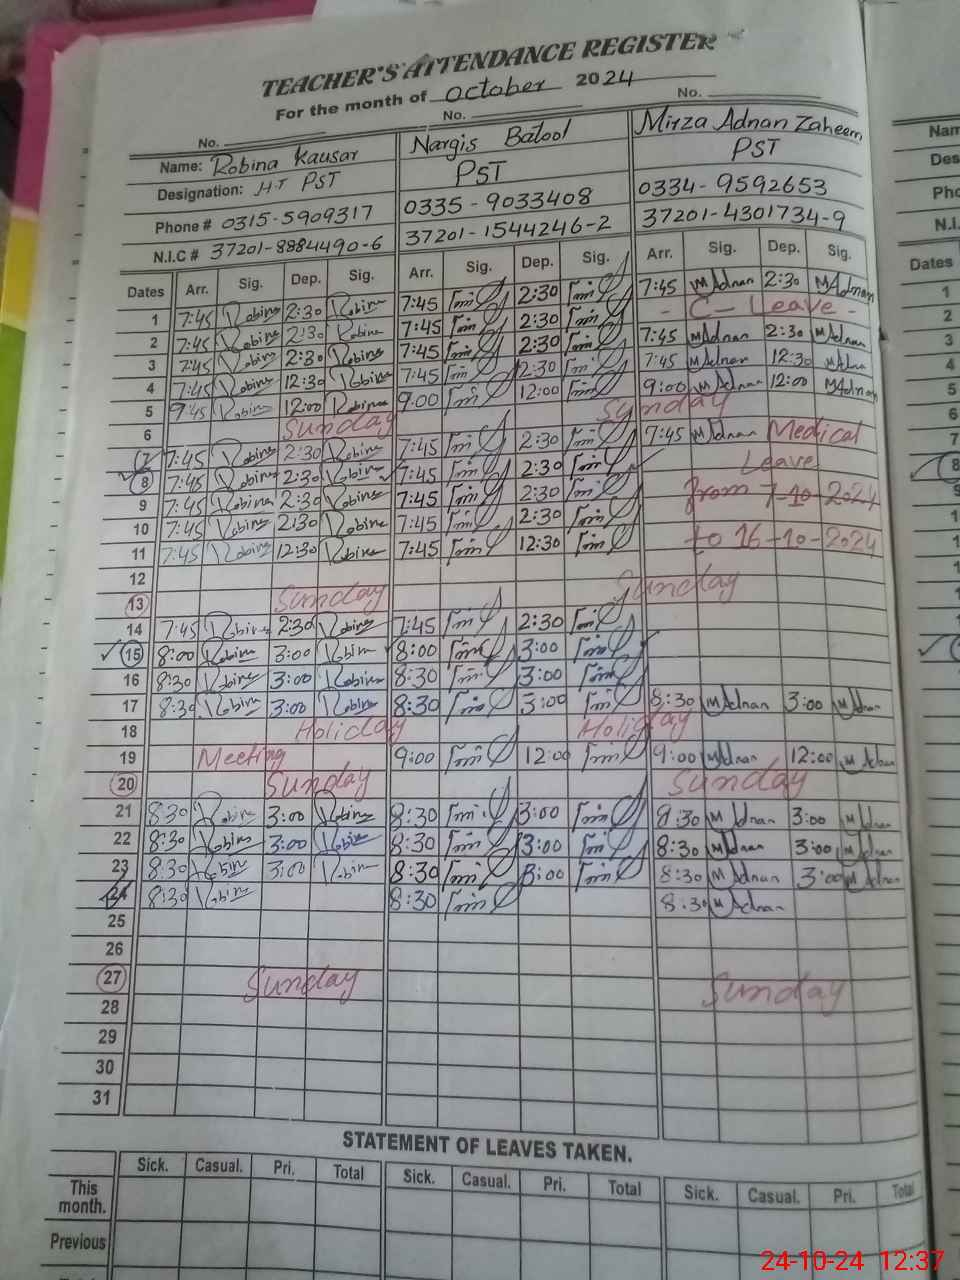 TEACHER'S ATTENDANCE REGISTER
For the month of October 2024
No. No. No.
Name: Robina Kausar Nargis Batool Mirza Adnan Zaheem
Designation: H.T PST PST PST
Phone # 0315-5909317 0335-9033408 0334-9592653
N.I.C # 37201-8884490-6 37201-1544246-2 37201-4301734-9
Dates Arr. Sig. Dep. Sig. Arr. Sig. Dep. Sig. Arr. Sig. Dep. Sig.
1 7:45 Robina 2:30 Robina 7:45 2:30 7:45 MAdnan 2:30 MAdnan
2 7:45 Robina 2:30 Robina 7:45 2:30 - C- Leave -
3 7:45 Robina 2:30 Robina 7:45 2:30 7:45 MAdnan 2:30 MAdnan
4 7:45 Robina 12:30 Robina 7:45 2:30 7:45 MAdnan 12:30 MAdnan
5 9:45 Robina 12:00 Robina 9:00 12:00 9:00 MAdnan 12:00 MAdnan
6 Sunday Sunday
7 7:45 Robina 2:30 Robina 7:45 2:30 7:45 MAdnan Medical
8 7:45 Robina 2:30 Robina 7:45 2:30 Leave
9 7:45 Robina 2:30 Robina 7:45 2:30 from 7-10-2024
10 7:45 Robina 2:30 Robina 7:45 2:30
11 7:45 Robina 12:30 Robina 7:45 12:30 to 16-10-2024
12
13 Sunday Sunday
14 7:45 Robina 2:30 Robina 7:45 2:30
15 8:00 Robina 3:00 Robina 8:00 3:00
16 8:30 Robina 3:00 Robina 8:30 3:00
17 8:30 Robina 3:00 Robina 8:30 3:00 8:30 MAdnan 3:00 MAdnan
18 Holiday Holiday
19 Meeting 9:00 12:00 9:00 MAdnan 12:00 MAdnan
20 Sunday Sunday
21 8:30 Robina 3:00 Robina 8:30 3:00 8:30 MAdnan 3:00 MAdnan
22 8:30 Robina 3:00 Robina 8:30 3:00 8:30 MAdnan 3:00 MAdnan
23 8:30 Robina 3:00 Robina 8:30 3:00 8:30 MAdnan 3:00 MAdnan
24 8:30 Robina 8:30 8:30 MAdnan
25
26
27 Sunday Sunday
28
29
30
31
STATEMENT OF LEAVES TAKEN.
Sick. Casual. Pri. Total Sick. Casual. Pri. Total Sick. Casual. Pri. Total
This month.
Previous
24-10-24 12:37